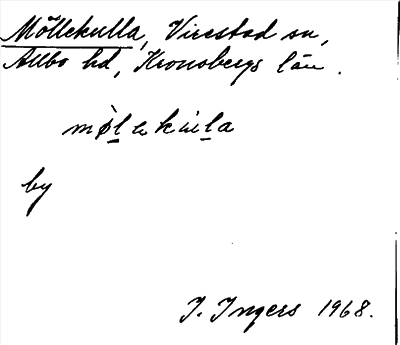 Möllekulla, Virestad sn,
Allbo hd, Kronobergs län.
mø̀lekùla
by
I. Ingers 1968.